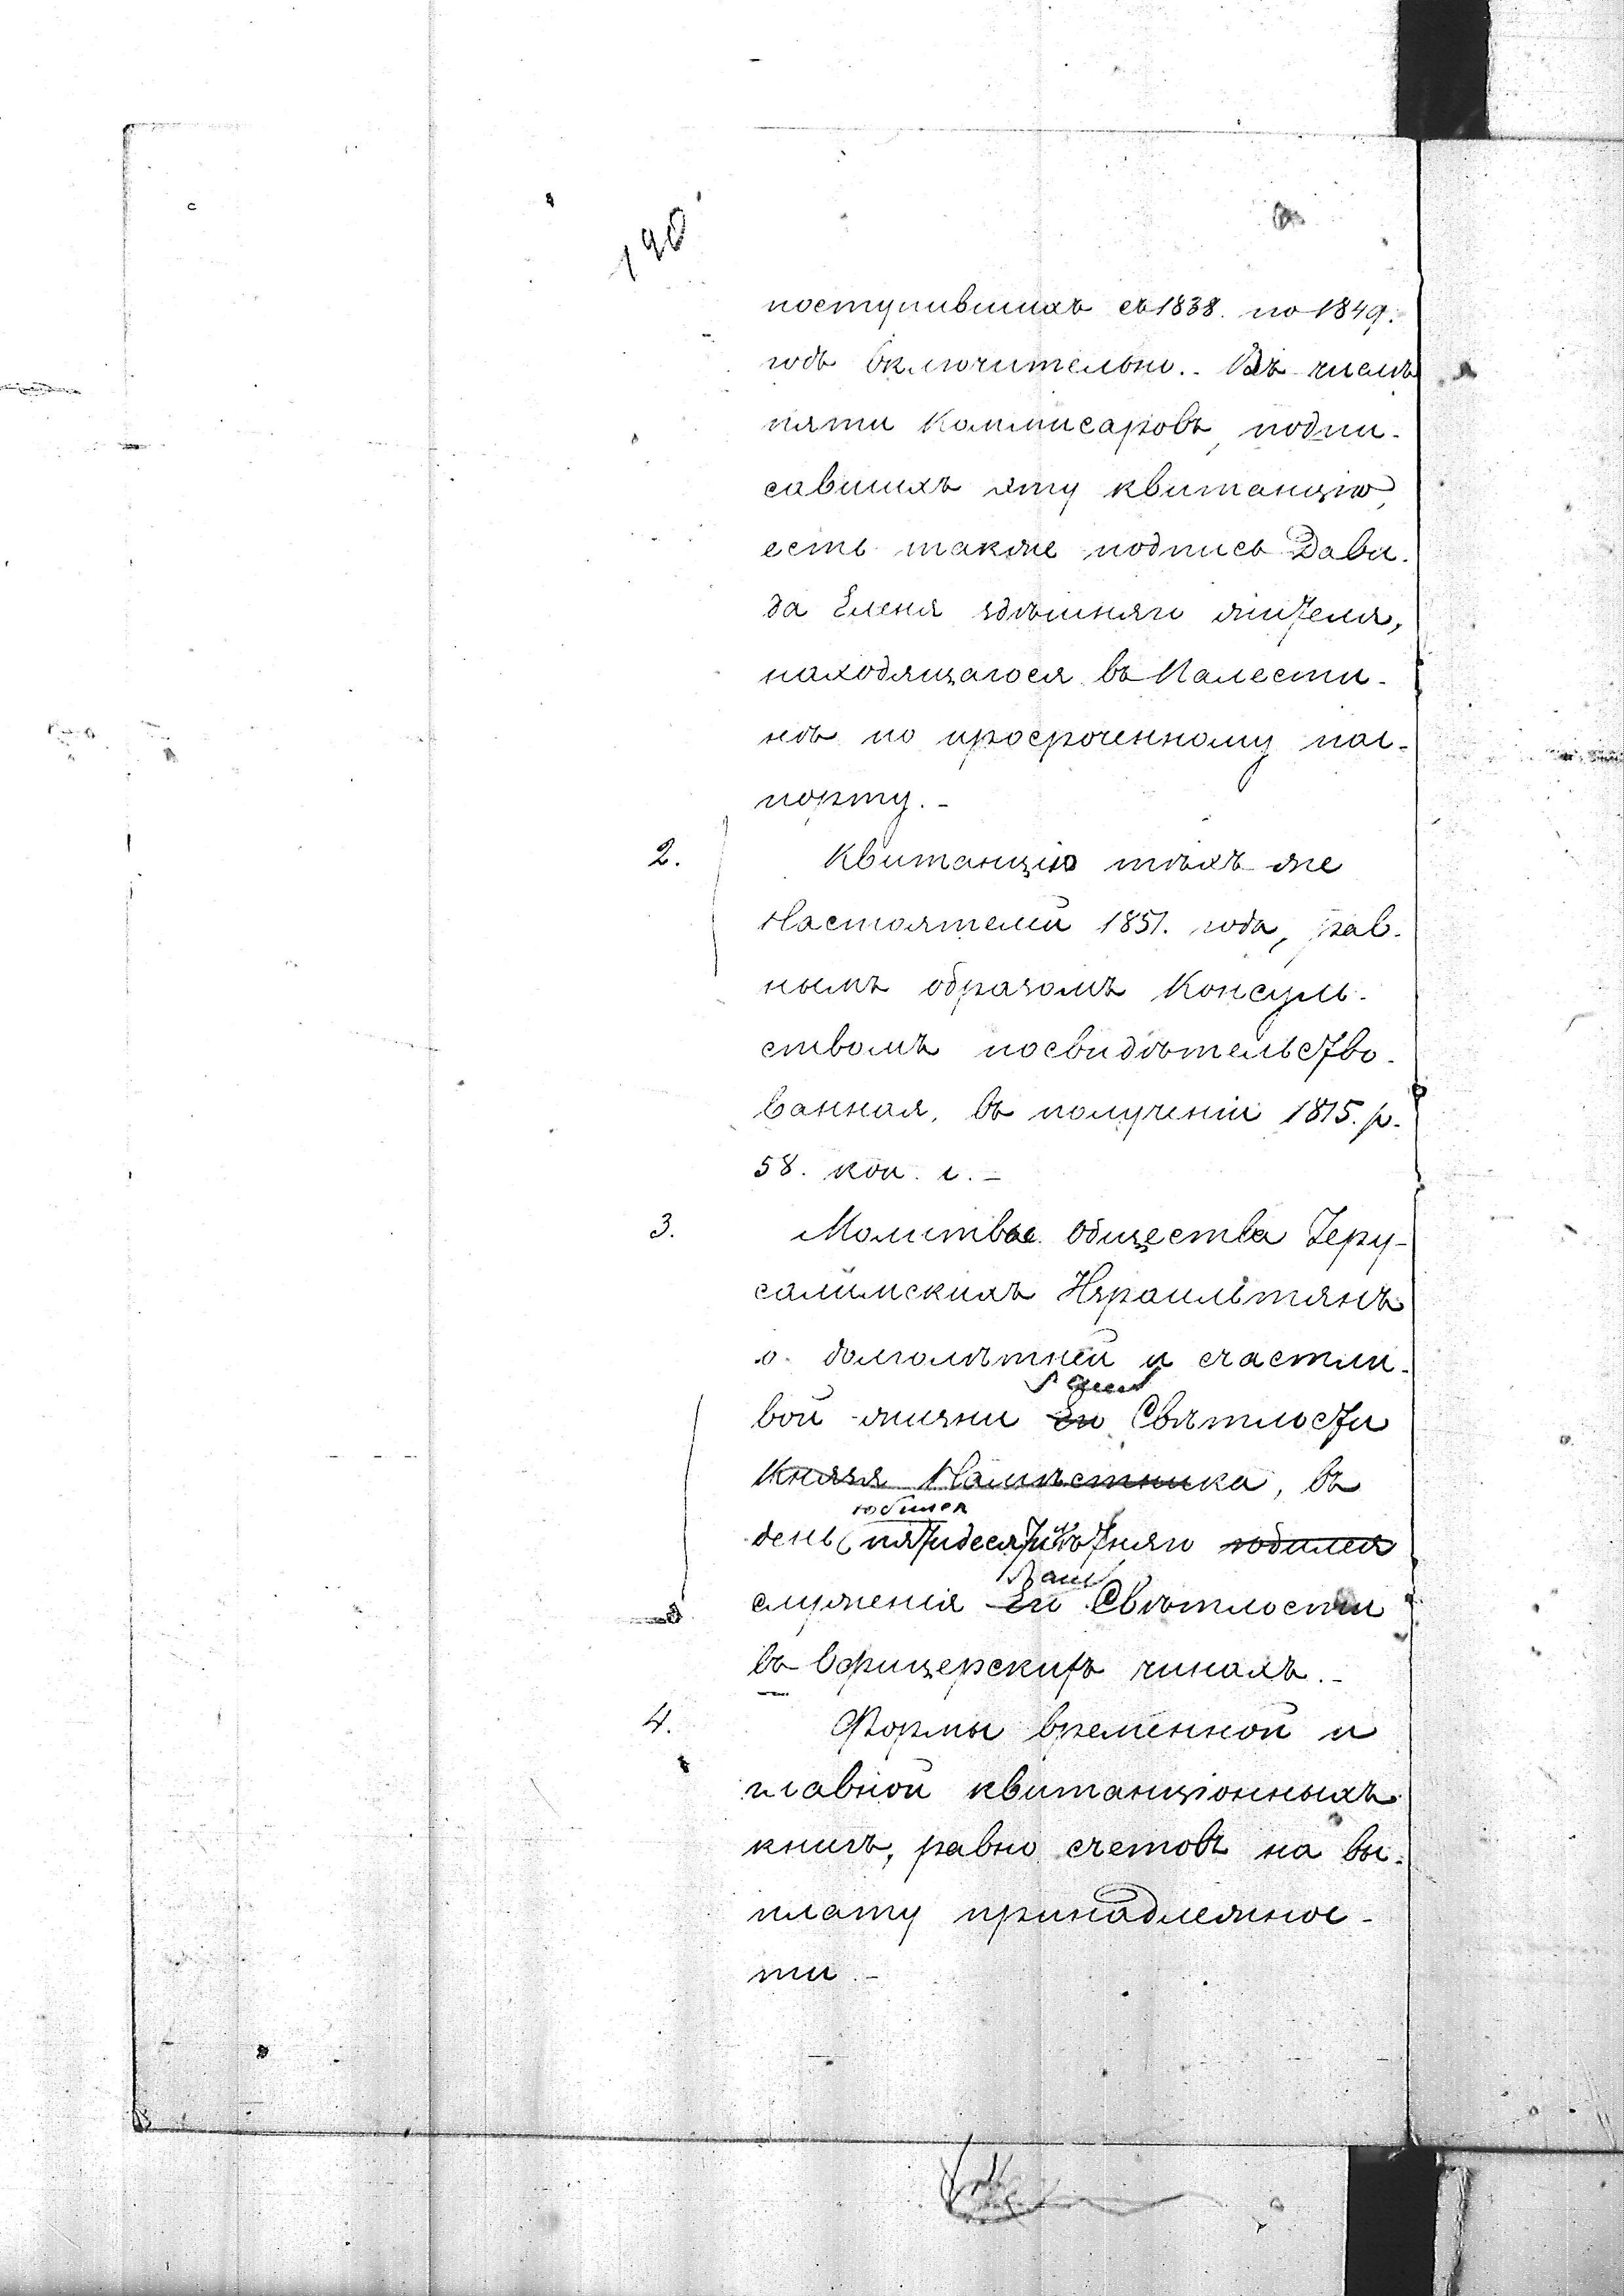 190
поступившихъ съ 1838. по 1849.
годъ включительно.. Въ числѣ
пяти Коммисаровъ, подпи-
савшихъ эту квитанцію,
есть также подпись Дави-
да Еленя здѣшняго жителя,
находящагося въ Палести-
нѣ по просроченному пас-
порту.-
2. Квитанцію тѣхъ же
Настоятелей 1851. года, рав-
нымъ образомъ Консуль-
ствомъ посвидѣтельство-
ванная, въ полученіи 1815. р.
58. коп. с.-
3. Молитвы Общества Іеру-
салимскихъ Израильтянъ
о долголѣтней и счастли-
вой жизни Его Свѣтлости
Князя Намѣстника, въ
юбилея
день пятидесятилѣтняго юбилея
Ваш
служенія Его Свѣтлости
въ Офицерскихъ чинахъ.-
4. Формы временной и
главной квитанціонныхъ
книгъ, равно счетовъ на вы-
плату принадлежнос-
ти.-